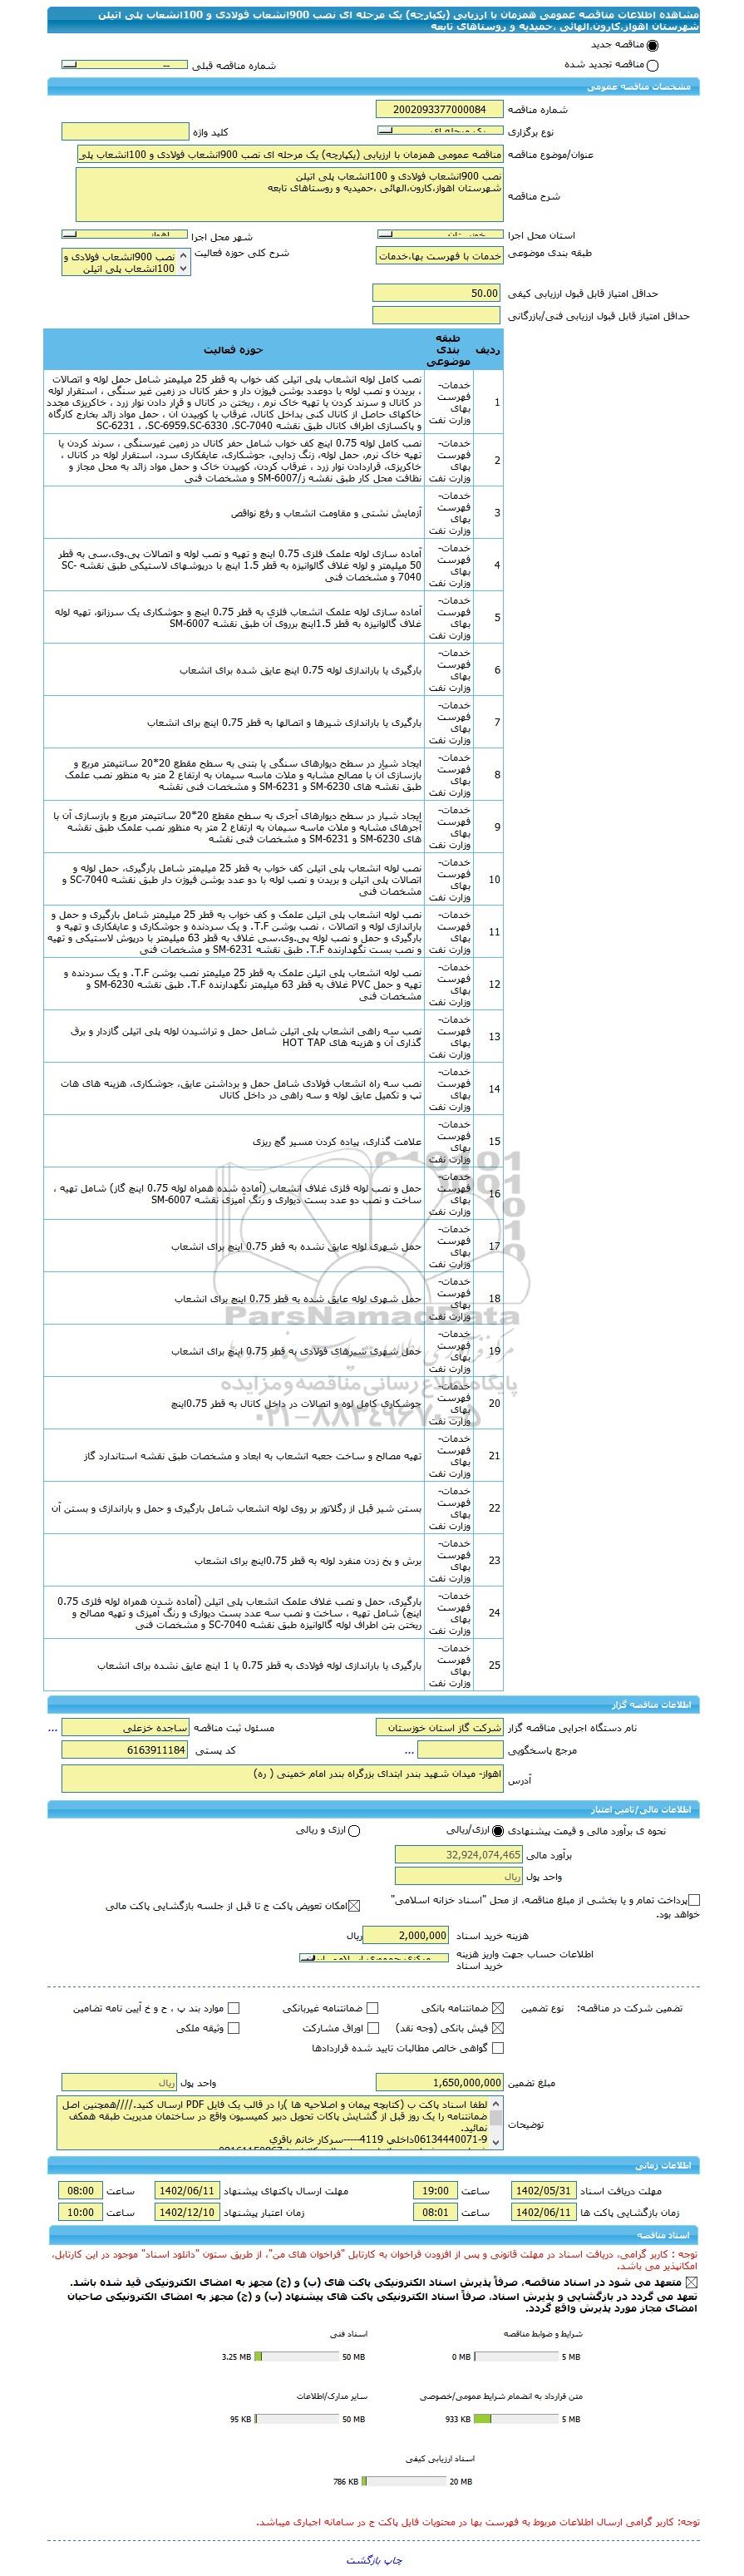 مشاهده اطلاعات مناقصه عمومی همزمان با ارزیابی (یکپارچه) یک مرحله ای نصب 900انشعاب فولادی و 100انشعاب پلی اتیلن
شهرستان اهواز،کارون،الهائی ،حمیدیه و روستاهای تابعه
مناقصه جدید
مناقصه تجدید شده
شماره مناقصه قبلی --
مشخصات مناقصه عمومی
شماره مناقصه 2002093377000084
نوع برگزاری یک مرحله ای
کلید واژه
عنوان/موضوع مناقصه مناقصه عمومی همزمان با ارزیابی (یکپارچه) یک مرحله ای نصب 900انشعاب فولادی و 100انشعاب پلی
شرح مناقصه نصب 900انشعاب فولادی و 100انشعاب پلی اتیلن
شهرستان اهواز،کارون،الهائی ،حمیدیه و روستاهای تابعه
استان محل اجرا خوزستان
شهر محل اجرا اهواز
طبقه بندی موضوعی خدمات با فهرست بها،خدمات
شرح کلی حوزه فعالیت نصب 900انشعاب فولادی و
100انشعاب پلی اتیلن
حداقل امتیاز قابل قبول ارزیابی کیفی 50.00
حداقل امتیاز قابل قبول ارزیابی فنی/بازرگانی
ردیف طبقه بندی موضوعی حوزه فعالیت
1 خدمات-فهرست بهای وزارت نفت نصب کامل لوله انشعاب پلی اتیلن کف خواب به قطر 25 میلیمتر شامل حمل لوله و اتصالات
، بریدن و نصب لوله با دوعدد بوشن فیوژن دار و حفر کانال در زمین غیر سنگی ، استقرار لوله
در کانال و سرند کردن یا تهیه خاک نرم ، ریختن در کانال و قرار دادن نوار زرد ، خاکریزی مجدد
خاکهای حاصل از کانال کنی بداخل کانال، غرقاب یا کوبیدن آن ، حمل مواد زائد بخارج کارگاه
و پاکسازی اطراف کانال طبق نقشه SC-7040، SC-6330،SC-6959، ، SC-6231
2 خدمات-فهرست بهای وزارت نفت نصب کامل لوله 0.75 اینچ کف خواب شامل حفر کانال در زمین غیرسنگی ، سرند کردن یا
تهیه خاک نرم، حمل لوله، زنگ زدایی، جوشکاری، عایقکاری سرد، استقرار لوله در کانال ،
خاکریزی، قراردادن نوار زرد ، غرقاب کردن، کوبیدن خاک و حمل مواد زائد به محل مجاز و
نظافت محل کار طبق نقشه ز/SM-6007 و مشخصات فنی
3 خدمات-فهرست بهای وزارت نفت آزمایش نشتی و مقاومت انشعاب و رفع نواقص
4 خدمات-فهرست بهای وزارت نفت آماده سازی لوله علمک فلزی 0.75 اینچ و تهیه و نصب لوله و اتصالات پی.وی.سی به قطر
50 میلیمتر و لوله غلاف گالوانیزه به قطر 1.5 اینچ با درپوشهای لاستیکی طبق نقشه SC-
7040 و مشخصات فنی
5 خدمات-فهرست بهای وزارت نفت آماده سازی لوله علمک انشعاب فلزی به قطر 0.75 اینچ و جوشکاری یک سرزانو، تهیه لوله
غلاف گالوانیزه به قطر 1.5اینچ برروی آن طبق نقشه SM-6007
6 خدمات-فهرست بهای وزارت نفت بارگیری یا باراندازی لوله 0.75 اینچ عایق شده برای انشعاب
7 خدمات-فهرست بهای وزارت نفت بارگیری یا باراندازی شیرها و اتصالها به قطر 0.75 اینچ برای انشعاب
8 خدمات-فهرست بهای وزارت نفت ایجاد شیار در سطح دیوارهای سنگی یا بتنی به سطح مقطع 20*20 سانتیمتر مربع و
بازسازی آن با مصالح مشابه و ملات ماسه سیمان به ارتفاع 2 متر به منظور نصب علمک
طبق نقشه های SM-6230 و SM-6231 و مشخصات فنی نقشه
9 خدمات-فهرست بهای وزارت نفت ایجاد شیار در سطح دیوارهای آجری به سطح مقطع 20*20 سانتیمتر مربع و بازسازی آن با
آجرهای مشابه و ملات ماسه سیمان به ارتفاع 2 متر به منظور نصب علمک طبق نقشه
های SM-6230 و SM-6231 و مشخصات فنی نقشه
10 خدمات-فهرست بهای وزارت نفت نصب لوله انشعاب پلی اتیلن کف خواب به قطر 25 میلیمتر شامل بارگیری، حمل لوله و
اتصالات پلی اتیلن و بریدن و نصب لوله با دو عدد بوشن فیوژن دار طبق نقشه SC-7040 و
مشخصات فنی
11 خدمات-فهرست بهای وزارت نفت نصب لوله انشعاب پلی اتیلن علمک و کف خواب به قطر 25 میلیمتر شامل بارگیری و حمل و
باراندازی لوله و اتصالات ، نصب بوشن T.F. و یک سردنده و جوشکاری و عایقکاری و تهیه و
بارگیری و حمل و نصب لوله پی.وی.سی غلاف به قطر 63 میلیمتر با درپوش لاستیکی و تهیه
و نصب بست نگهدارنده T.F. طبق نقشه SM-6231 و مشخصات فنی
12 خدمات-فهرست بهای وزارت نفت نصب لوله انشعاب پلی اتیلن علمک به قطر 25 میلیمتر نصب بوشن T.F. و یک سردنده و
تهیه و حمل PVC غلاف به قطر 63 میلیمتر نگهدارنده T.F. طبق نقشه SM-6230 و
مشخصات فنی
13 خدمات-فهرست بهای وزارت نفت نصب سه راهی انشعاب پلی اتیلن شامل حمل و تراشیدن لوله پلی اتیلن گازدار و برق
گذاری آن و هزینه های HOT TAP
14 خدمات-فهرست بهای وزارت نفت نصب سه راه انشعاب فولادی شامل حمل و برداشتن عایق، جوشکاری، هزینه های هات
تپ و تکمیل عایق لوله و سه راهی در داخل کانال
15 خدمات-فهرست بهای وزارت نفت علامت گذاری، پیاده کردن مسیر گچ ریزی
16 خدمات-فهرست بهای وزارت نفت حمل و نصب لوله فلزی غلاف انشعاب (آماده شده همراه لوله 0.75 اینچ گاز) شامل تهیه ،
ساخت و نصب دو عدد بست دیواری و رنگ آمیزی نقشه SM-6007
17 خدمات-فهرست بهای وزارت نفت حمل شهری لوله عایق نشده به قطر 0.75 اینچ برای انشعاب
18 خدمات-فهرست بهای وزارت نفت حمل شهری لوله عایق شده به قطر 0.75 اینچ برای انشعاب
19 خدمات-فهرست بهای وزارت نفت حمل شهری شیرهای فولادی به قطر 0.75 اینچ برای انشعاب
20 خدمات-فهرست بهای وزارت نفت جوشکاری کامل لوه و اتصالات در داخل کانال به قطر 0.75اینچ
21 خدمات-فهرست بهای وزارت نفت تهیه مصالح و ساخت جعبه انشعاب به ابعاد و مشخصات طبق نقشه استاندارد گاز
22 خدمات-فهرست بهای وزارت نفت بستن شیر قبل از رگلاتور بر روی لوله انشعاب شامل بارگیری و حمل و باراندازی و بستن آن
23 خدمات-فهرست بهای وزارت نفت برش و پخ زدن منفرد لوله به قطر 0.75اینچ برای انشعاب
24 خدمات-فهرست بهای وزارت نفت بارگیری، حمل و نصب غلاف علمک انشعاب پلی اتیلن (آماده شدن همراه لوله فلزی 0.75
اینچ) شامل تهیه ، ساخت و نصب سه عدد بست دیواری و رنگ آمیزی و تهیه مصالح و
ریختن بتن اطراف لوله گالوانیزه طبق نقشه SC-7040 و مشخصات فنی
25 خدمات-فهرست بهای وزارت نفت بارگیری یا باراندازی لوله فولادی به قطر 0.75 یا 1 اینچ عایق نشده برای انشعاب
ParsNamadData
پایگاه اطلاع رسانی مناقصه و مزایده
۰۲۱-۸۸۳۴۹۶۷۰-۵
اطلاعات مناقصه گزار
نام دستگاه اجرایی مناقصه گزار شرکت گاز استان خوزستان
مسئول ثبت مناقصه ساجده خزعلی ...
مرجع پاسخگویی ...
کد پستی 6163911184
آدرس اهواز- میدان شهید بندر ابتدای بزرگراه بندر امام خمینی ( ره)
اطلاعات مالی/تامین اعتبار
نحوه ی برآورد مالی و قیمت پیشنهادی ارزی/ریالی ارزی و ریالی
برآورد مالی 32,924,074,465
واحد پول ریال
پرداخت تمام و یا بخشی از مبلغ مناقصه، از محل "اسناد خزانه اسلامی"
خواهد بود.
امکان تعویض پاکت ج تا قبل از جلسه بازگشایی پاکت مالی
هزینه خرید اسناد 2,000,000 ریال
اطلاعات حساب جهت واریز هزینه خرید اسناد
تضمین شرکت در مناقصه: نوع تضمین ضمانتنامه بانکی ضمانتنامه غیربانکی موارد بند پ ، ح و خ آیین نامه تضامین
فیش بانکی (وجه نقد) اوراق مشارکت وثیقه ملکی
گواهی خالص مطالبات تایید شده قراردادها
مبلغ تضمین 1,650,000,000
واحد پول ریال
توضیحات لطفا اسناد پاکت ب (کتابچه پیمان و اصلاحیه ها )را در قالب یک فایل PDF ارسال کنید.////همچنین اصل
ضمانتنامه را یک روز قبل از گشایش پاکات تحویل دبیر کمیسیون واقع در ساختمان مدیریت طبقه همکف
نمائید.
06134440071-9داخلی 4119-----سرکار خانم باقری
اطلاعات زمانی
مهلت دریافت اسناد 1402/05/31 ساعت 19:00
مهلت ارسال پاکتهای پیشنهاد 1402/06/11 ساعت 08:00
زمان بازگشایی پاکت ها 1402/06/11 ساعت 08:01
زمان اعتبار پیشنهاد 1402/12/10 ساعت 10:00
اسناد مناقصه
توجه : کاربر گرامی، دریافت اسناد در مهلت قانونی و پس از افزودن فراخوان به کارتابل "فراخوان های من"، از طریق ستون "دانلود اسناد" موجود در این کارتابل،
امکانپذیر می باشد.
متعهد می شود در اسناد مناقصه، صرفاً پذیرش اسناد الکترونیکی پاکت های (ب) و (ج) مجهز به امضای الکترونیکی قید شده باشد.
تعهد می گردد در بازگشایی و پذیرش اسناد، صرفاً اسناد الکترونیکی پاکت های پیشنهاد (ب) و (ج) مجهز به امضای الکترونیکی صاحبان
امضای مجاز مورد پذیرش واقع گردد.
شرایط و ضوابط مناقصه
5 MB 0 MB
اسناد فنی
50 MB 3.25 MB
متن قرارداد به انضمام شرایط عمومی/خصوصی
5 MB 933 KB
سایر مدارک/اطلاعات
50 MB 95 KB
اسناد ارزیابی کیفی
20 MB 786 KB
توجه: کاربر گرامی ارسال اطلاعات مربوط به فهرست بها در محتویات فایل پاکت ج در سامانه اجباری میباشد.
چاپ بازگشت